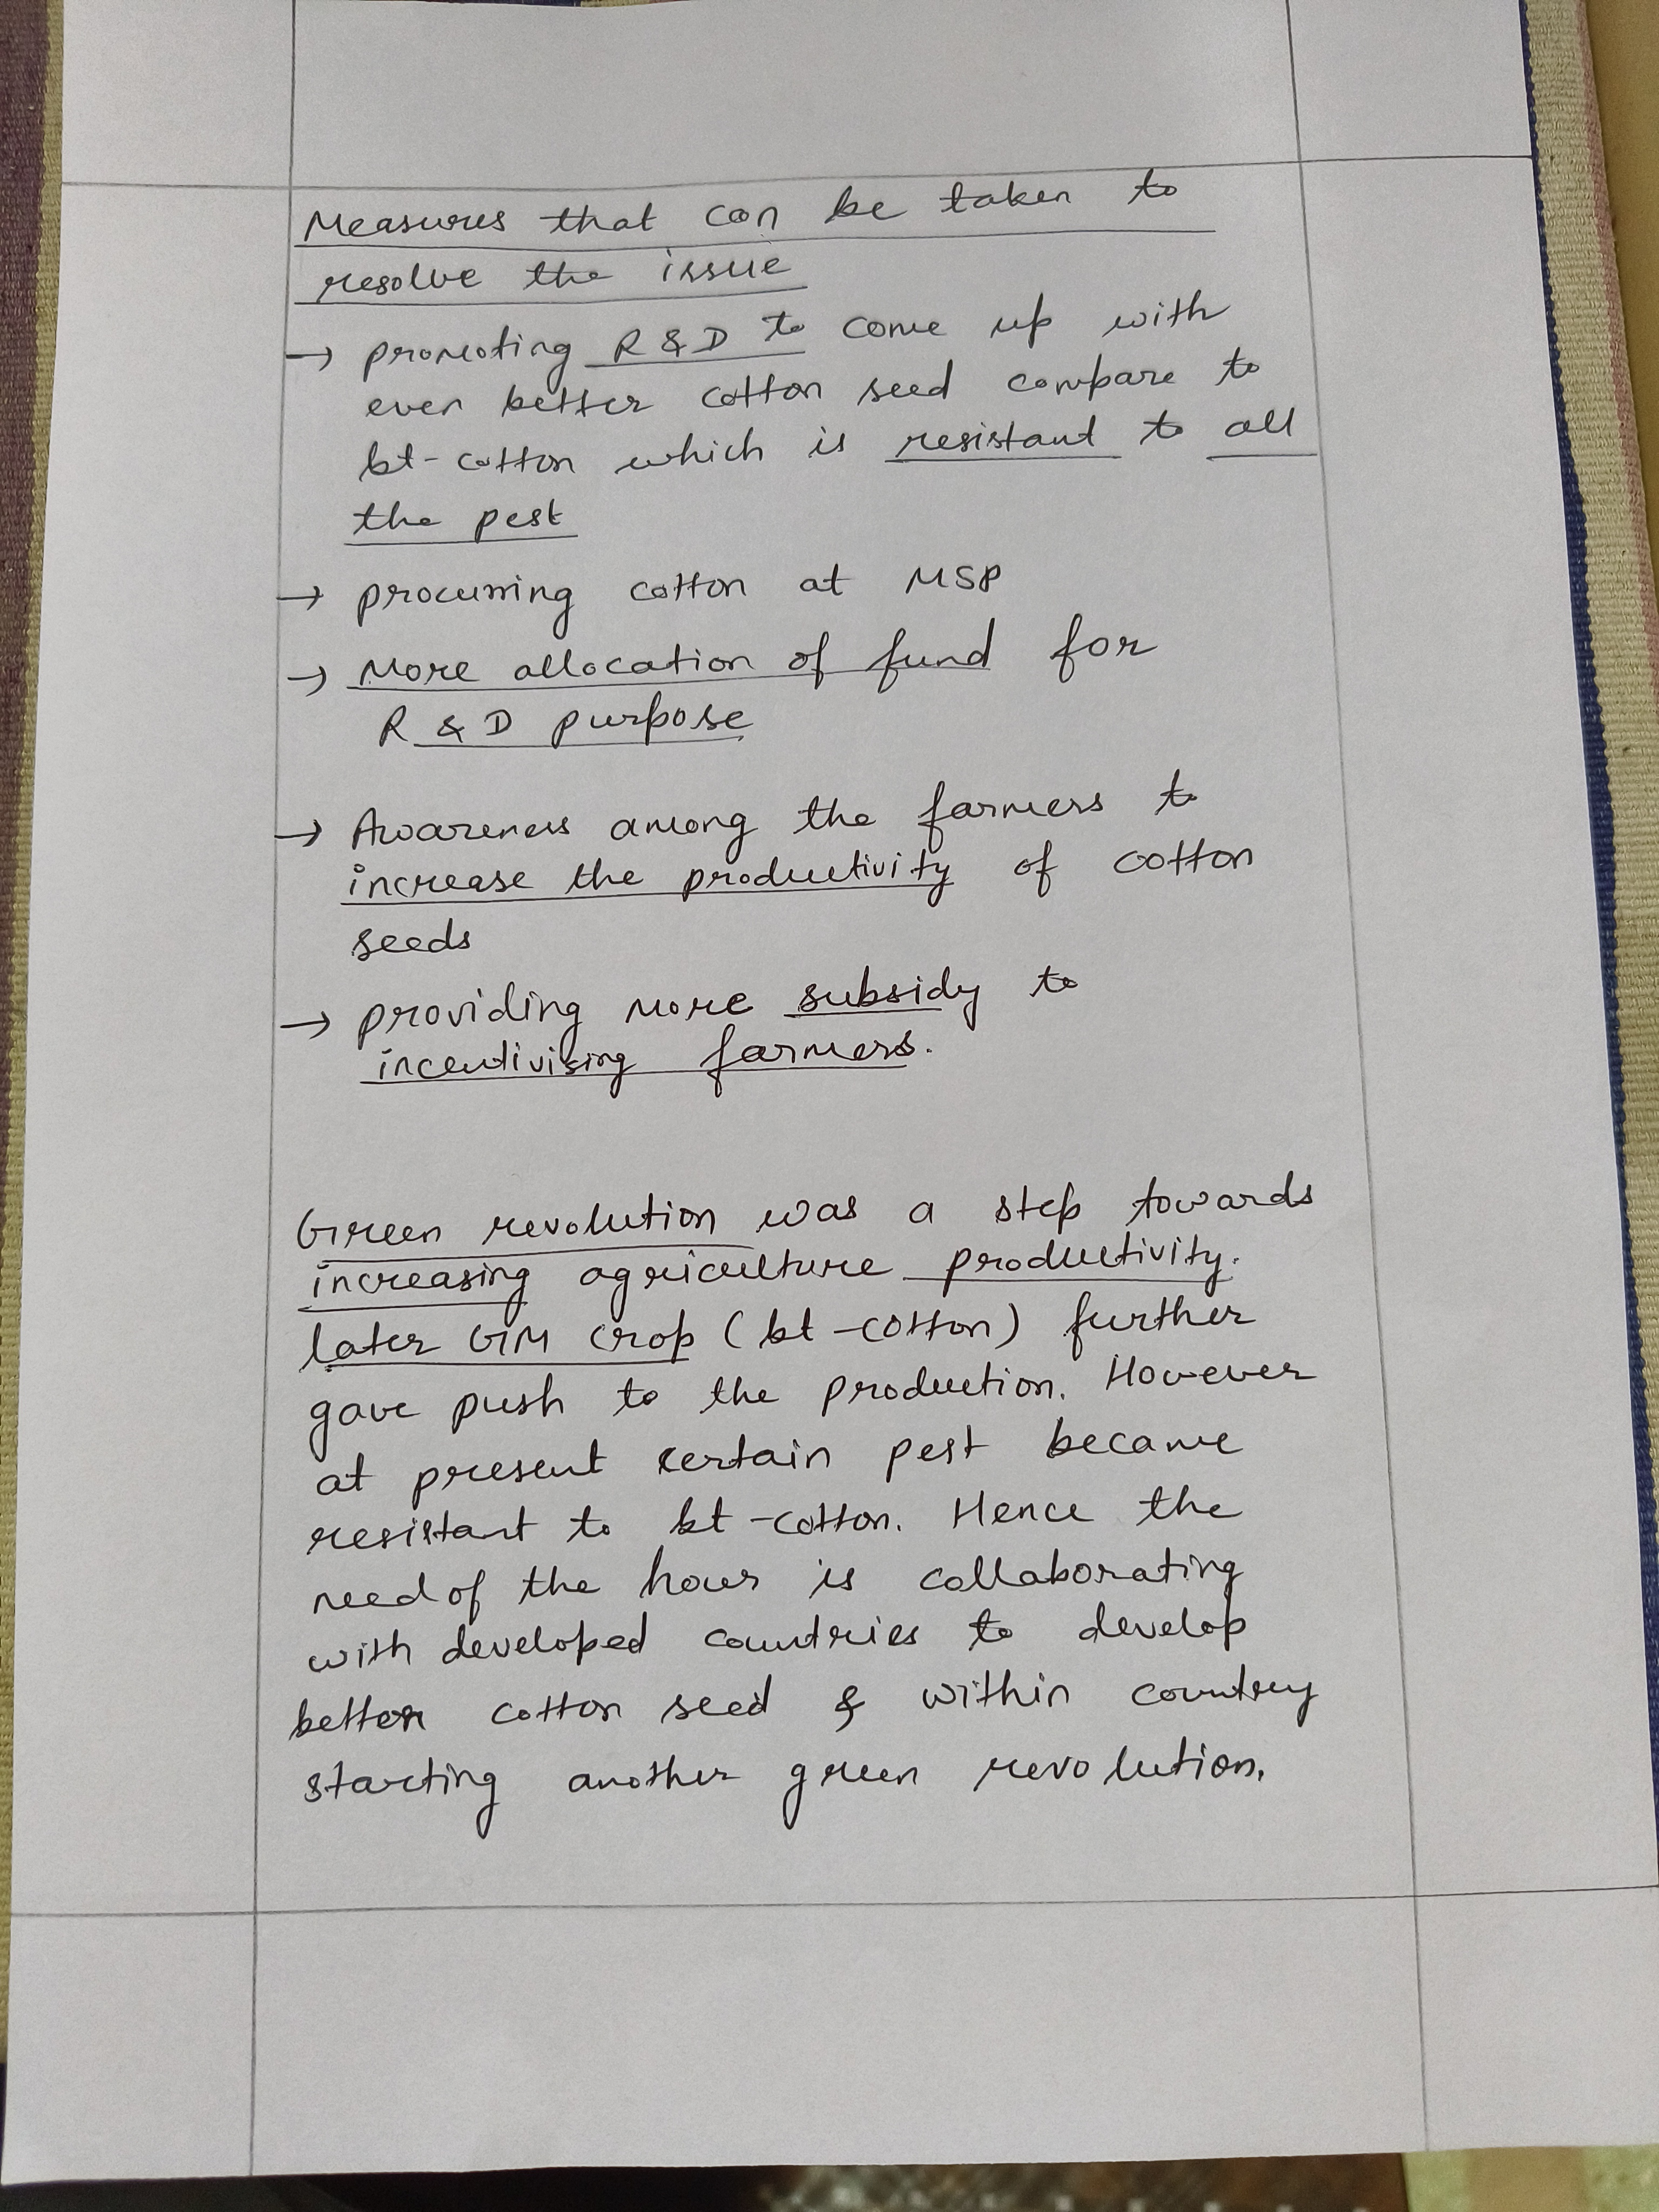 Measures that can be taken to
resolve the issue
→ promoting R & D to come up with
even better cotton seed compare to
bt-cotton which is resistant to all
the pest
→ procurring cotton at MSP
→ More allocation of fund for
R & D purpose
→ Awareness among the farmers to
increase the productivity of cotton
seeds
→ providing more subsidy to
incentivising farmers.
Green revolution was a step towards
increasing agriculture productivity.
later GM crop (bt-cotton) further
gave push to the production. However
at present certain pest became
resistant to bt-cotton. Hence the
need of the hour is collaborating
with developed countries to develop
better cotton seed & within country
starting another green revolution.